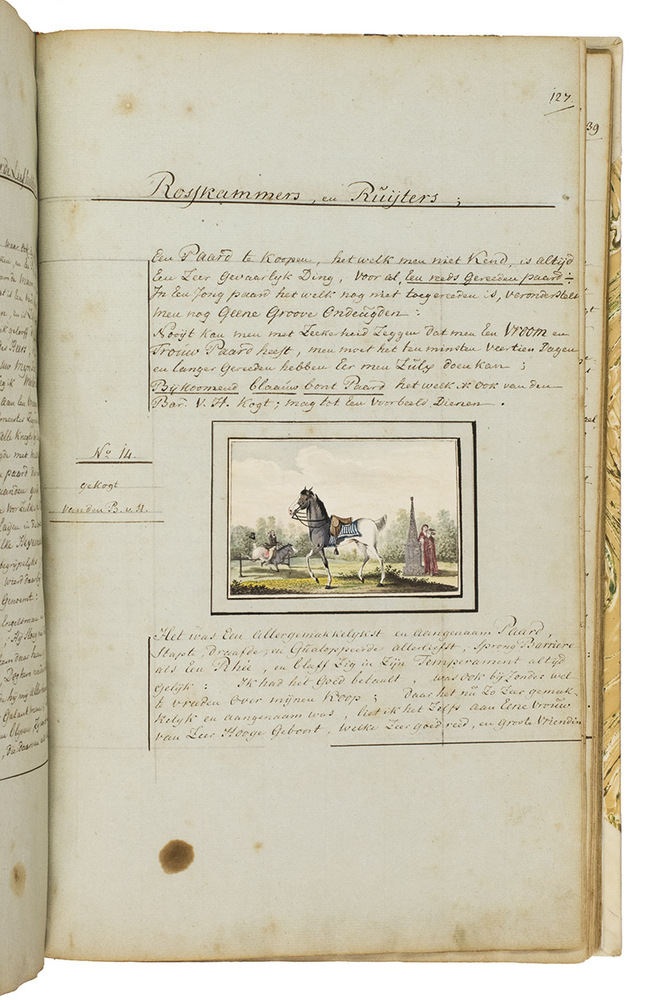 127.
39
Rosskammers, en Ruijters;
Een Paard te Koopen, het welk men niet Kend, is altijd
Een Zeer Gevaarlijk Ding, voor al, Een reeds Gereeden paard:
In Een Jong paard het welk nog niet toegereeden is, veronderstelt
men nog Geene Groove Ondeugden:
Nooijt kan men met Zeekerheid Zeggen dat men Een Vroom en
Trouw Paard heeft, men moet het ten minsten Veertien Dagen
en langer Gereeden hebben Eer men Zulx doen kan;
Bijkoomend blaauw bont Paard het welk ik ook van den
Bar. V. H. Kogt; mag tot Een Voorbeeld Dienen.
No 14.
gekogt
van den B. v. H.
Het was Een Allergemakkelijkst en Aangenaam Paard,
Stapte, draafde, en Gualoppeerde allerliefst, Sprong Barriere
als Een Rhée, en bleeff Zig in Zijn Temperament altijd
Gelijk: Ik had het Goed betaalt, was ook bij Fondes wel
te vraden Over mijnen Koop; daar het nu Zo Zeer gemak-
kelijk en aangenaam was, liet ik het Zelfs aan Eene Vrouw
van Zeer Hooge Geboort, welke Zeer goed reed, en Groote Vriendin